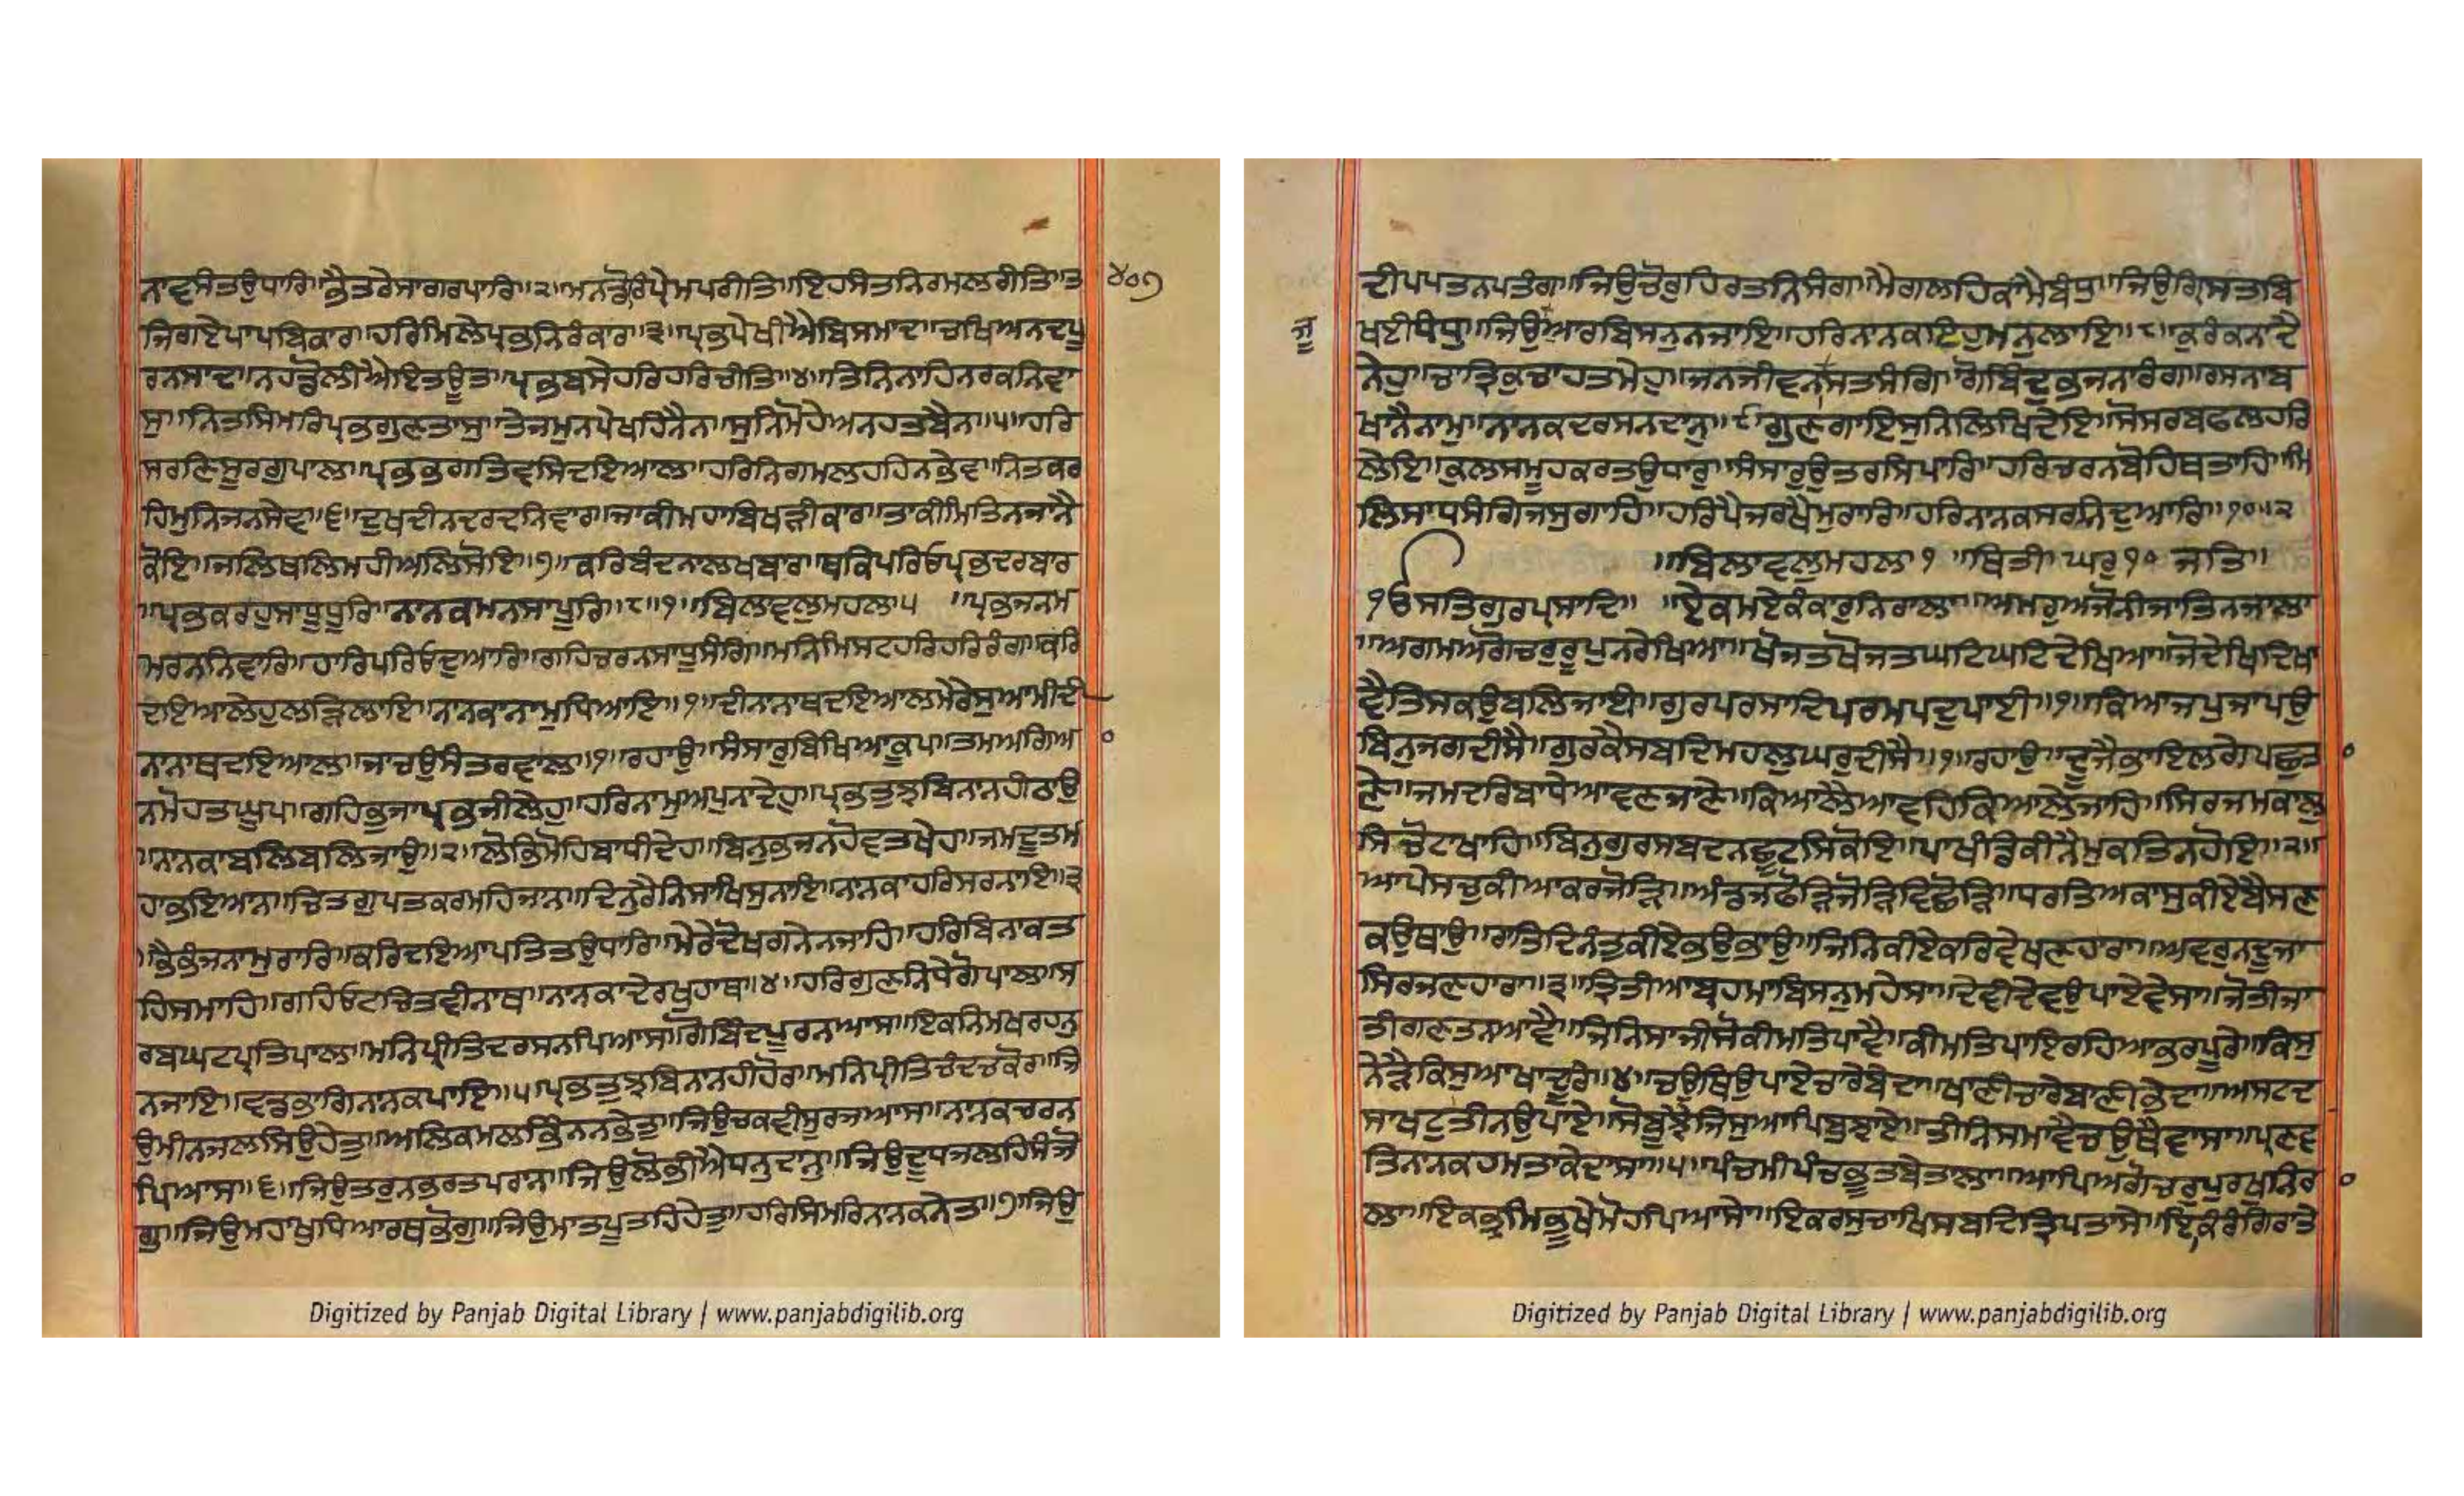 ਨਾਵਸੰਤਉਧਾਰਿ॥ਭੈਤਰੇਸਾਗਰਪਾਰਿ॥੨॥ਮਨਤੋਰਿਪ੍ਰੇਮਪਰੀਤਿ॥ਇਹਸੰਤਨਿਰਮਲਰੀਤਿ॥ਤ
੪੦੭
ਜਿਗਏਪਾਪਬਿਕਾਰ॥ਹਰਿਮਿਲੇਪ੍ਰਭਨਿਰੰਕਾਰ॥੩॥ਪ੍ਰਭਪੇਖੀਐਬਿਸਮਾਦ॥ਚਖਿਅਨਦਪੂ
ਰਨਸਾਦ॥ਨਹਡੋਲੀਐਇਤਊਤ॥ਪ੍ਰਭਬਸੇਹਰਿਹਰਿਚੀਤਿ॥੪॥ਤਿਨਿਨਾਹਿਨਰਕਨਿਵਾ
ਸੁ॥ਨਿਤਸਿਮਰਿਪ੍ਰਭਗੁਣਤਾਸੁ॥ਤੇਜਮੁਨਪੇਖਹਿਨੈਨ॥ਸੁਨਿਮੋਹੇਅਨਹਤਬੈਨ॥੫॥ਹਰਿ
ਸਰਣਿਸੂਰਗੁਪਾਲ॥ਪ੍ਰਭਭਗਤਿਵਸਿਦਇਆਲ॥ਹਰਿਨਿਗਮਲਹਹਿਨਭੇਵ॥ਨਿਤਕਰ
ਹਿਮੁਨਿਜਨਸੇਵ॥੬॥ਦੁਖਦੀਨਦਰਦਨਿਵਾਰ॥ਜਾਕੀਮਹਾਬਿਖੜੀਕਾਰ॥ਤਾਕੀਮਿਤਿਨਜਾਨੈ
ਕੋਇ॥ਜਲਿਥਲਿਮਹੀਅਲਿਸੋਇ॥੭॥ਕਰਿਬੰਦਨਾਲਖਬਾਰ॥ਥਕਿਪਰਿਓਪ੍ਰਭਦਰਬਾਰ
॥ਪ੍ਰਭਕਰਹੁਸਾਧੂਧੂਰਿ॥ਨਾਨਕਮਨਸਾਪੂਰਿ॥੮॥੧॥ਬਿਲਾਵਲੁਮਹਲਾ੫ ॥ਪ੍ਰਭਜਨਮ
ਮਰਨਨਿਵਾਰਿ॥ਹਾਰਿਪਰਿਓਦੁਆਰਿ॥ਗਹਿਚਰਨਸਾਧੂਸੰਗਿ॥ਮਨਿਮਿਸਟਹਰਿਹਰਿਰੰਗ॥ਕਰਿ
ਦਇਆਲੇਹੁਲੜਿਲਾਇ॥ਨਾਨਕਾਨਾਮੁਧਿਆਇ॥੧॥ਦੀਨਾਨਾਥਦਇਆਲਮੇਰੇਸੁਆਮੀਦੀ
ਨਾਨਾਥਦਇਆਲ॥ਜਾਚਉਸੰਤਰਵਾਲ॥੧॥ਰਹਾਉ॥ਸੰਸਾਰੁਬਿਖਿਆਕੂਪ॥ਤਮਅਗਿਆ
ਨਮੋਹਤਘੂਪ॥ਗਹਿਭੁਜਾਪ੍ਰਭਜੀਲੇਹੁ॥ਹਰਿਨਾਮੁਅਪੁਨਾਦੇਹੁ॥ਪ੍ਰਭਤੁਝਬਿਨਾਨਹੀਠਾਉ
॥ਨਾਨਕਾਬਲਿਬਲਿਜਾਉ॥੨॥ਲੋਭਿਮੋਹਿਬਾਧੀਦੇਹ॥ਬਿਨੁਭਜਨਹੋਵਤਖੇਹ॥ਜਮਦੂਤਮ
ਹਾਭਇਆਨ॥ਚਿਤਗੁਪਤਕਰਮਹਿਜਾਨ॥ਦਿਨੁਰੈਨਿਸਾਖਿਸੁਨਾਇ॥ਨਾਨਕਾਹਰਿਸਰਨਾਇ॥੩
॥ਭੈਭੰਜਨਾਮੁਰਾਰਿ॥ਕਰਿਦਇਆਪਤਿਤਉਧਾਰਿ॥ਮੇਰੇਦੋਖਗਨੇਨਜਾਹਿ॥ਹਰਿਬਿਨਾਕਤ
ਹਿਸਮਾਹਿ॥ਗਹਿਓਟਚਿਤਵੀਨਾਥ॥ਨਾਨਕਾਦੇਰਖੁਹਾਥ॥੪॥ਹਰਿਗੁਣਨਿਧੇਗੋਪਾਲ॥ਸ
ਰਬਘਟਪ੍ਰਤਿਪਾਲ॥ਮਨਿਪ੍ਰੀਤਿਦਰਸਨਪਿਆਸ॥ਗੋਬਿੰਦਪੂਰਨਆਸ॥ਇਕਨਿਮਖਰਹਨੁ
ਨਜਾਇ॥ਵਡਭਾਗਿਨਾਨਕਪਾਇ॥੫॥ਪ੍ਰਭਤੁਝਬਿਨਾਨਹੀਹੋਰ॥ਮਨਿਪ੍ਰੀਤਿਚੰਦਚਕੋਰ॥ਜਿ
ਉਮੀਨਜਲਸਿਉਹੇਤੁ॥ਅਲਿਕਮਲਭਿੰਨਨਭੇਤੁ॥ਜਿਉਚਕਵੀਸੂਰਜਆਸ॥ਨਾਨਕਚਰਨ
ਪਿਆਸ॥੬॥ਜਿਉਤਰੁਨਭਰਤਪਰਾਨ॥ਜਿਉਲੋਭੀਐਧਨੁਦਾਨੁ॥ਜਿਉਦੂਧਜਲਹਿਸੰਜੋ
ਗੁ॥ਜਿਉਮਹਾਖੁਧਿਆਰਥਭੋਗੁ॥ਜਿਉਮਾਤਪੂਤਹਿਹੇਤੁ॥ਹਰਿਸਿਮਰਿਨਾਨਕਨੇਤ॥੭॥ਜਿਉ
Digitized by Panjab Digital Library | www.panjabdigilib.org
ਦੀਪਪਤਨਪਤੰਗ॥ਜਿਉਚੋਰੁਹਿਰਤਨਿਸੰਗ॥ਮੈਗਲਹਿਕਾਮੈਬੰਧੁ॥ਜਿਉਗ੍ਰਿਸਤਬਿ
ਖਈਧੰਧੁ॥ਜਿਉਜੂਆਰਬਿਸਨੁਨਜਾਇ॥ਹਰਿਨਾਨਕਇਹੁਮਨੁਲਾਇ॥੮॥ਕੁਰੰਕਨਾਦੈ
ਨੇਹੁ॥ਚਾਤ੍ਰਿਕੁਚਾਹਤਮੇਹੁ॥ਜਨਜੀਵਨਾਸਤਸੰਗਿ॥ਗੋਬਿਦੁਭਜਨਾਰੰਗ॥ਰਸਨਾਬ
ਖਾਨੈਨਾਮੁ॥ਨਾਨਕਦਰਸਨਦਾਨੁ॥੯॥ਗੁਣਗਾਇਸੁਨਿਲਿਖਿਦੇਇ॥ਸੋਸਰਬਫਲਹਰਿ
ਲੇਇ॥ਕੁਲਸਮੂਹਕਰਤਉਧਾਰੁ॥ਸੰਸਾਰੁਉਤਰਸਿਪਾਰਿ॥ਹਰਿਚਰਨਬੋਹਿਥਤਾਹਿ॥ਮਿ
ਲਿਸਾਧਸੰਗਿਜਸੁਗਾਹਿ॥ਹਰਿਪੈਜਰਖੈਮੁਰਾਰਿ॥ਹਰਿਨਾਨਕਸਰਨਿਦੁਆਰਿ॥੧੦॥੨
॥ਬਿਲਾਵਲੁਮਹਲਾ੧ ॥ਥਿਤੀ ਘਰੁ੧੦ ਜਤਿ॥
ੴਸਤਿਗੁਰਪ੍ਰਸਾਦਿ॥ ॥ਏਕਮਏਕੰਕਾਰੁਨਿਰਾਲਾ॥ਅਮਰੁਅਜੋਨੀਜਾਤਿਨਜਾਲਾ
॥ਅਗਮਅਗੋਚਰੁਰੂਪੁਨਰੇਖਿਆ॥ਖੋਜਤਖੋਜਤਘਟਿਘਟਿਦੇਖਿਆ॥ਜੋਦੇਖਿਦਿਖਾ
ਵੈਤਿਸਕਉਬਲਿਜਾਈ॥ਗੁਰਪਰਸਾਦਿਪਰਮਪਦੁਪਾਈ॥੧॥ਕਿਆਜਪੁਜਾਪਉ
ਬਿਨੁਜਗਦੀਸੈ॥ਗੁਰਕੈਸਬਦਿਮਹਲੁਘਰੁਦੀਸੈ॥੧॥ਰਹਾਉ॥ਦੂਜੈਭਾਇਲਗੇਪਛੁਤਾ
ਣੇ॥ਜਮਦਰਿਬਾਧੇਆਵਣਜਾਣੇ॥ਕਿਆਲੈਆਵਹਿਕਿਆਲੇਜਾਹਿ॥ਸਿਰਜਮਕਾਲੁ
ਸਿਚੋਟਾਖਾਹਿ॥ਬਿਨੁਗੁਰਸਬਦਨਛੂਟਸਿਕੋਇ॥ਪਾਖੰਡਿਕੀਨੈਮੁਕਤਿਨਹੋਇ॥੨॥
ਆਪੇਸਚੁਕੀਆਕਰਜੋੜਿ॥ਅੰਡਜਫੋੜਿਜੋੜਿਵਿਛੋੜਿ॥ਧਰਤਿਅਕਾਸੁਕੀਏਬੈਸਣ
ਕਉਥਾਉ॥ਰਾਤਿਦਿਨੰਤੁਕੀਏਭਉਭਾਉ॥ਜਿਨਿਕੀਏਕਰਿਵੇਖਣਹਾਰਾ॥ਅਵਰੁਨਦੂਜਾ
ਸਿਰਜਣਹਾਰਾ॥੩॥ਤ੍ਰਿਤੀਆਬ੍ਰਹਮਾਬਿਸਨੁਮਹੇਸਾ॥ਦੇਵੀਦੇਵਉਪਾਏਵੇਸਾ॥ਜੋਤੀਜਾ
ਤੀਗਣਤਨਆਵੈ॥ਜਿਨਿਸਾਜੀਸੋਕੀਮਤਿਪਾਵੈ॥ਕੀਮਤਿਪਾਇਰਹਿਆਭਰਪੂਰੇ॥ਕਿਸੁ
ਨੇੜੈਕਿਸੁਆਖਾਦੂਰੇ॥੪॥ਚਉਥਿਉਪਾਏਚਾਰੇਬੇਦਾ॥ਖਾਣੀਚਾਰੇਬਾਣੀਭੇਦਾ॥ਅਸਟਦ
ਸਾਖਟੁਤੀਨਉਪਾਏ॥ਸੋਬੂਝੈਜਿਸੁਆਪਿਬੁਝਾਏ॥ਤੀਨਿਸਮਾਵੈਚਉਥੈਵਾਸਾ॥ਪ੍ਰਣਵ
ਤਿਨਾਨਕਹਮਤਾਕੇਦਾਸਾ॥੫॥ਪੰਚਮੀਪੰਚਭੂਤਬੇਤਾਲਾ॥ਆਪਿਅਗੋਚਰੁਪੁਰਖੁਨਿਰ
ਲਾ॥ਇਕਭ੍ਰਮਿਭੂਖੇਮੋਹਪਿਆਸੇ॥ਇਕਰਸੁਚਾਖਿਸਬਦਿਤ੍ਰਿਪਤਾਸੇ॥ਇਕਰੰਗਿਰਾਤੇ
Digitized by Panjab Digital Library | www.panjabdigilib.org